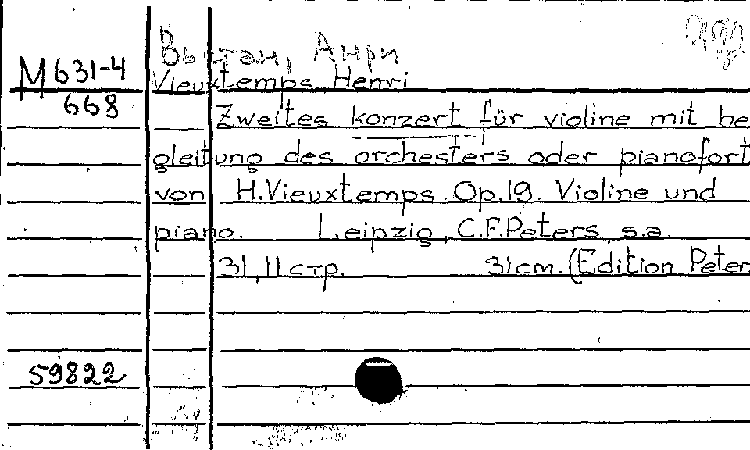 Вьетан, Анри
М 631-4
Vieuxtemps, Henri
668
Zweites konzert für violine mit be
gleitung des orchesters oder pianofort
von H. Vieuxtemps. Op.19. Violine und
piano. Leipzig, C.F.Peters s.a.
31, 11 стр. 31 cm. (Edition Peter
59822